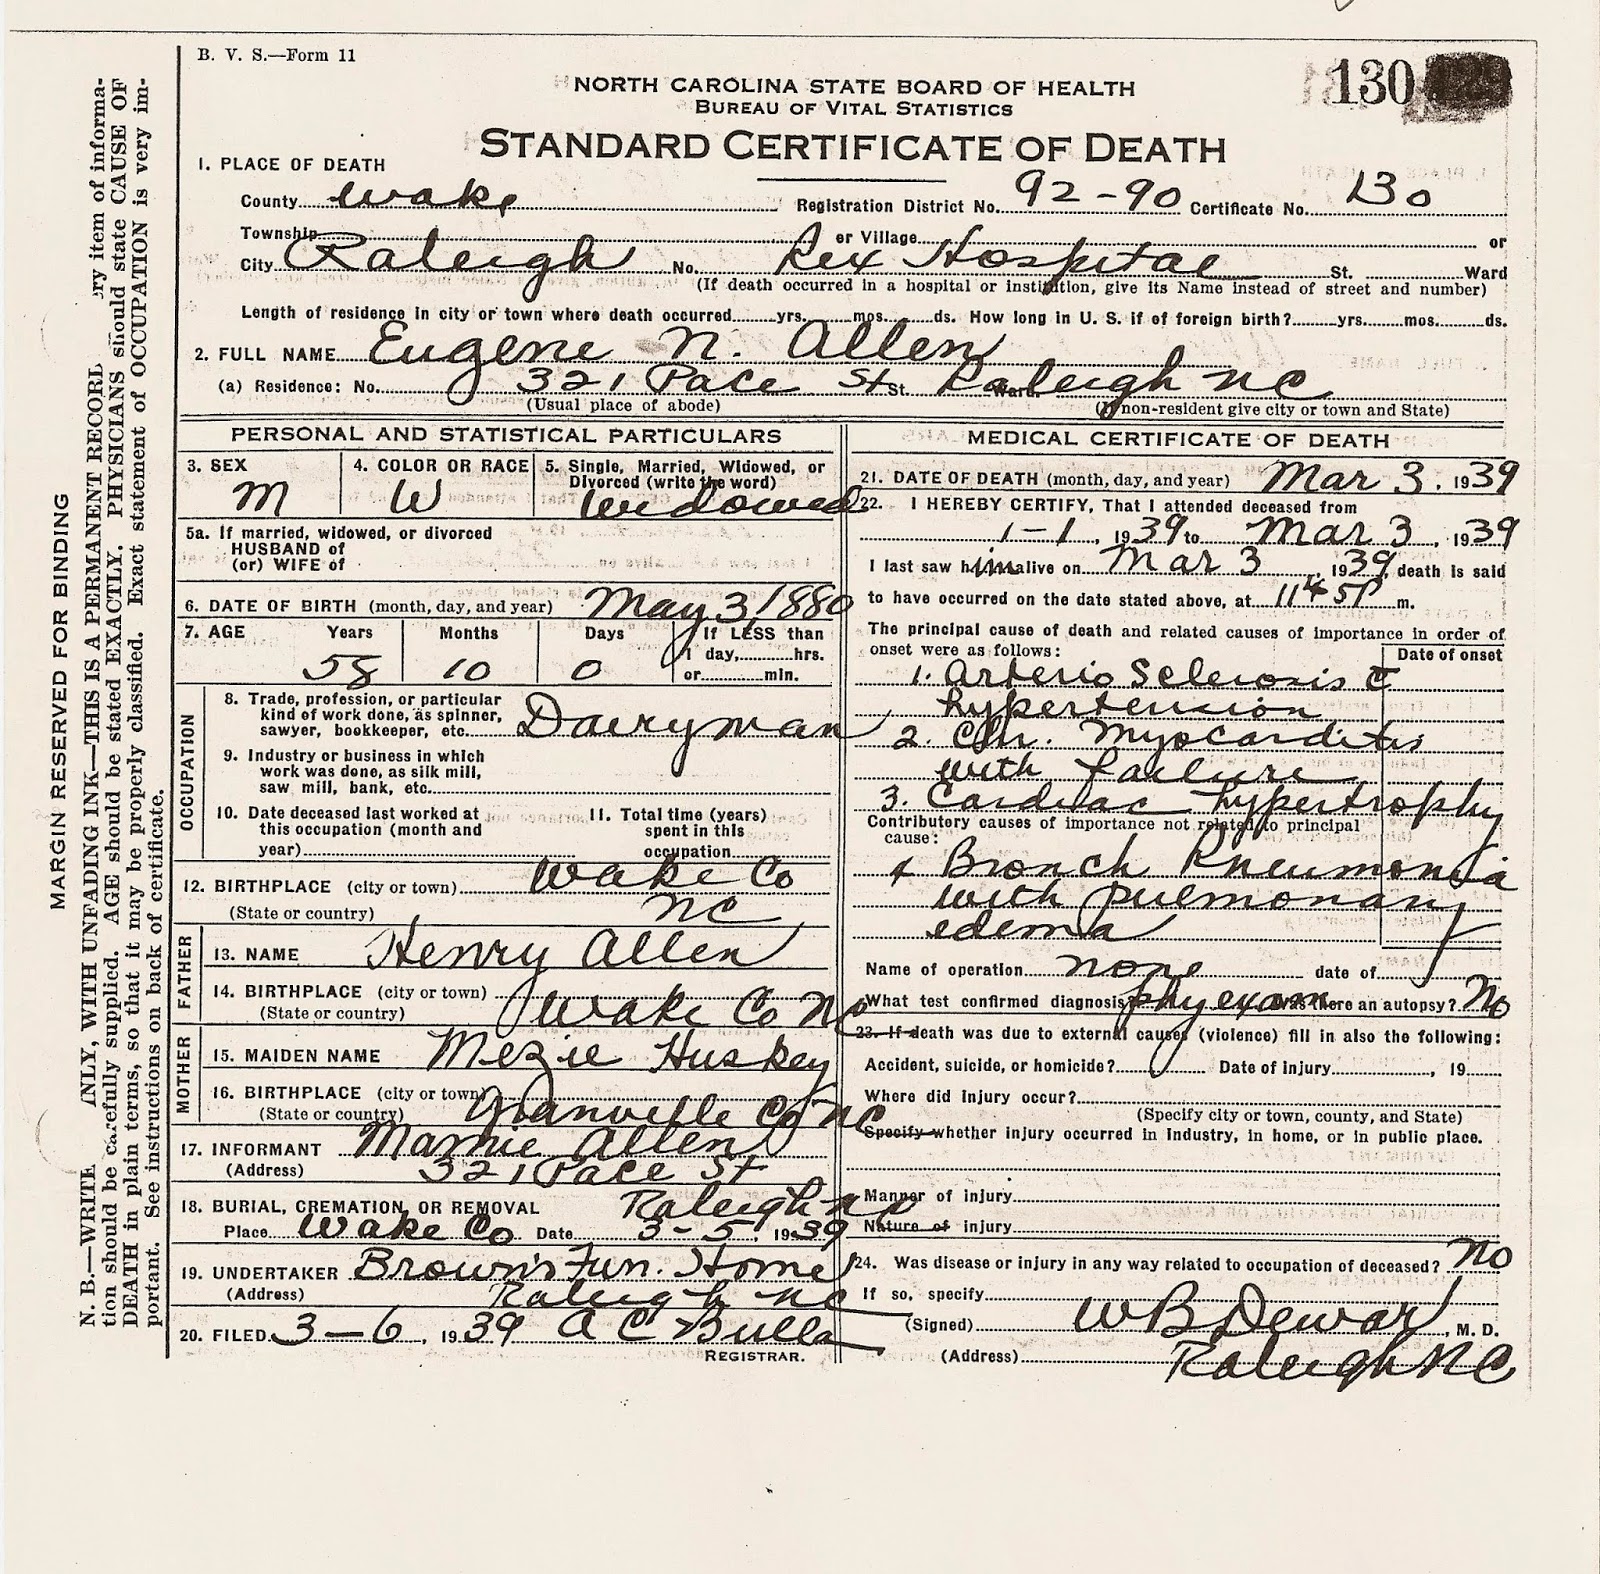 B. V. S.—Form 11
130
NORTH CAROLINA STATE BOARD OF HEALTH
BUREAU OF VITAL STATISTICS
STANDARD CERTIFICATE OF DEATH
1. PLACE OF DEATH
County Wake Registration District No. 92-90 Certificate No. 130
Township or Village or
City Raleigh No. Rex Hospital St. Ward
(If death occurred in a hospital or institution, give its Name instead of street and number)
Length of residence in city or town where death occurred yrs. mos. ds. How long in U. S. if of foreign birth? yrs. mos. ds.
2. FULL NAME Eugene N. Allen
(a) Residence: No. 321 Pace St St. Raleigh NC Ward.
(Usual place of abode) (If non-resident give city or town and State)
PERSONAL AND STATISTICAL PARTICULARS
3. SEX 4. COLOR OR RACE 5. Single, Married, Widowed, or
Divorced (write the word)
M W Widowed
5a. If married, widowed, or divorced
HUSBAND of
(or) WIFE of
6. DATE OF BIRTH (month, day, and year) May 3, 1880
7. AGE Years Months Days If LESS than
1 day, hrs.
58 10 0 or min.
OCCUPATION
8. Trade, profession, or particular
kind of work done, as spinner,
sawyer, bookkeeper, etc. Dairyman
9. Industry or business in which
work was done, as silk mill,
saw mill, bank, etc.
10. Date deceased last worked at
this occupation (month and
year)
11. Total time (years)
spent in this
occupation
12. BIRTHPLACE (city or town) Wake Co
(State or country) NC
FATHER
13. NAME Henry Allen
14. BIRTHPLACE (city or town)
(State or country) Wake Co NC
MOTHER
15. MAIDEN NAME Mezie Huskey
16. BIRTHPLACE (city or town)
(State or country) Granville Co NC
17. INFORMANT Mamie Allen
(Address) 321 Pace St
Raleigh NC
18. BURIAL, CREMATION, OR REMOVAL
Place Wake Co Date 3-5, 1939
19. UNDERTAKER Brown's Fun. Home
(Address) Raleigh NC
20. FILED 3-6, 1939 A C Bulla
REGISTRAR.
MEDICAL CERTIFICATE OF DEATH
21. DATE OF DEATH (month, day, and year) Mar 3, 1939
22. I HEREBY CERTIFY, That I attended deceased from
1-1, 1939 to Mar 3, 1939
I last saw him alive on Mar 3, 1939, death is said
to have occurred on the date stated above, at 11 45 P m.
The principal cause of death and related causes of importance in order of
onset were as follows: Date of onset
1. Arterio Sclerosis c̄
hypertension
2. Chr. Myocarditis
with failure
3. Cardiac hypertrophy
Contributory causes of importance not related to principal
cause:
4 Bronch Pneumonia
with pulmonary
edema
Name of operation none date of
What test confirmed diagnosis? phy exam Was there an autopsy? No
23. If death was due to external causes (violence) fill in also the following:
Accident, suicide, or homicide? Date of injury , 19
Where did injury occur?
(Specify city or town, county, and State)
Specify whether injury occurred in Industry, in home, or in public place.
Manner of injury
Nature of injury
24. Was disease or injury in any way related to occupation of deceased? No
If so, specify
(Signed) W B Dewar, M. D.
(Address) Raleigh NC
MARGIN RESERVED FOR BINDING
N. B.—WRITE NLY, WITH UNFADING INK—THIS IS A PERMANENT RECORD ry item of informa-
tion should be carefully supplied. AGE should be stated EXACTLY. PHYSICIANS should state CAUSE OF
DEATH in plain terms, so that it may be properly classified. Exact statement of OCCUPATION is very im-
portant. See instructions on back of certificate.